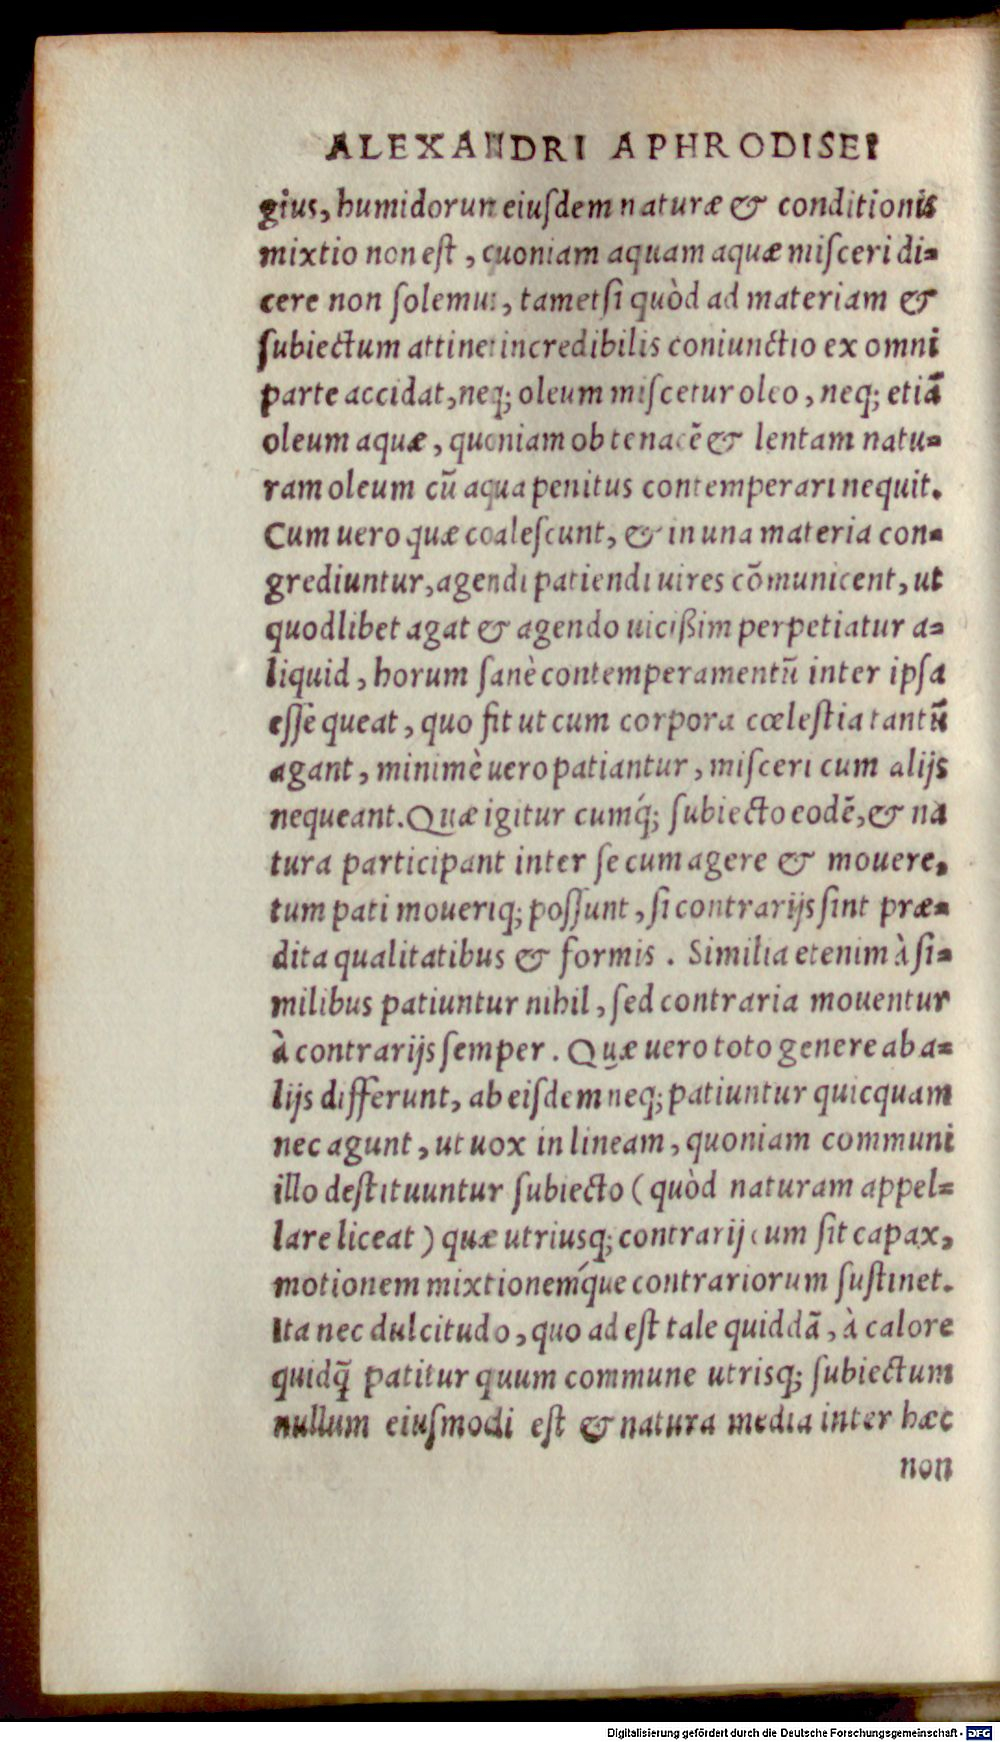 ALEXANDRI APHRODISEI
gius, humidorum eiuſdem naturæ & conditionis
mixtio non eſt, quoniam aquam aquæ miſceri di=
cere non ſolemus, tametſi quòd ad materiam &
ſubiectum attinet incredibilis coniunctio ex omni
parte accidat, neq; oleum miſcetur oleo, neq; etiã
oleum aquæ, quoniam ob tenacẽ & lentam natu=
ram oleum cũ aqua penitus contemperari nequit.
Cum uero quæ coaleſcunt, & in una materia con=
grediuntur, agendi patiendi uires cõmunicent, ut
quodlibet agat & agendo uicißim perpetiatur a=
liquid, horum ſanè contemperamentũ inter ipſa
eſſe queat, quo fit ut cum corpora cœleſtia tantũ
agant, minimè uero patiantur, miſceri cum alijs
nequeant. Quæ igitur cumq́; ſubiecto eodẽ, & na
tura participant inter ſe cum agere & mouere,
tum pati moueriq; poſſunt, ſi contrarijs ſint præ=
dita qualitatibus & formis. Similia etenim à ſi=
milibus patiuntur nihil, ſed contraria mouentur
à contrarijs ſemper. Quæ uero toto genere ab a=
lijs differunt, ab eiſdem neq; patiuntur quicquam
nec agunt, ut uox in lineam, quoniam communi
illo deſtituuntur ſubiecto (quòd naturam appel=
lare liceat) quæ utriusq; contrarij cum ſit capax,
motionem mixtionemq́ue contrariorum ſuſtinet.
Ita nec dulcitudo, quo ad eſt tale quiddã, à calore
quidq̃ patitur quum commune utrisq; ſubiectum
nullum eiuſmodi eſt & natura media inter hæc
non
Digitalisierung gefördert durch die Deutsche Forschungsgemeinschaft - DFG